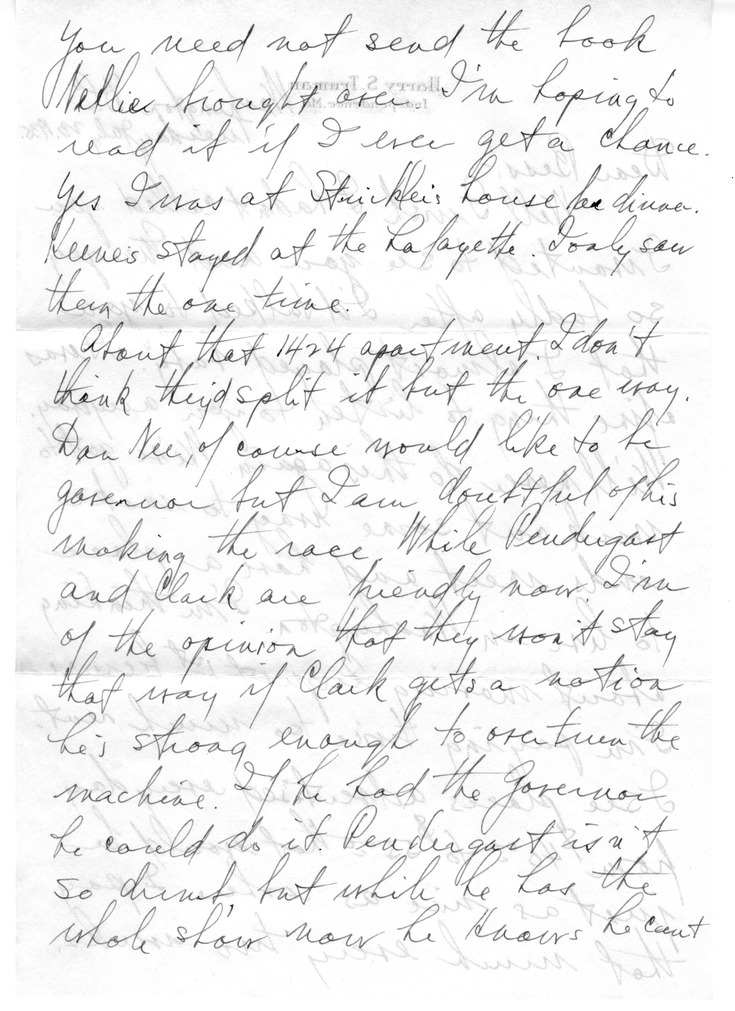 You need not send the book
Nellie brought over. I'm hoping to
read it if I ever get a chance.
Yes I was at Strickler's house for dinner.
Keenes stayed at the Lafayette. I only saw
them the one time.
About that 1424 apartment. I don't
think they'd split it but the one way.
Dan Nee, of course would like to be
governor but I am doubtful of his
making the race. While Pendergast
and Clark are friendly now I'm
of the opinion that they won't stay
that way if Clark gets a notion
he's strong enough to overturn the
machine. If he had the Governor
he could do it. Pendergast isn't
so dumb, but while he has the
whole show now he knows he can't
Harry S. Truman
Independence, Mo.
Dear Bess